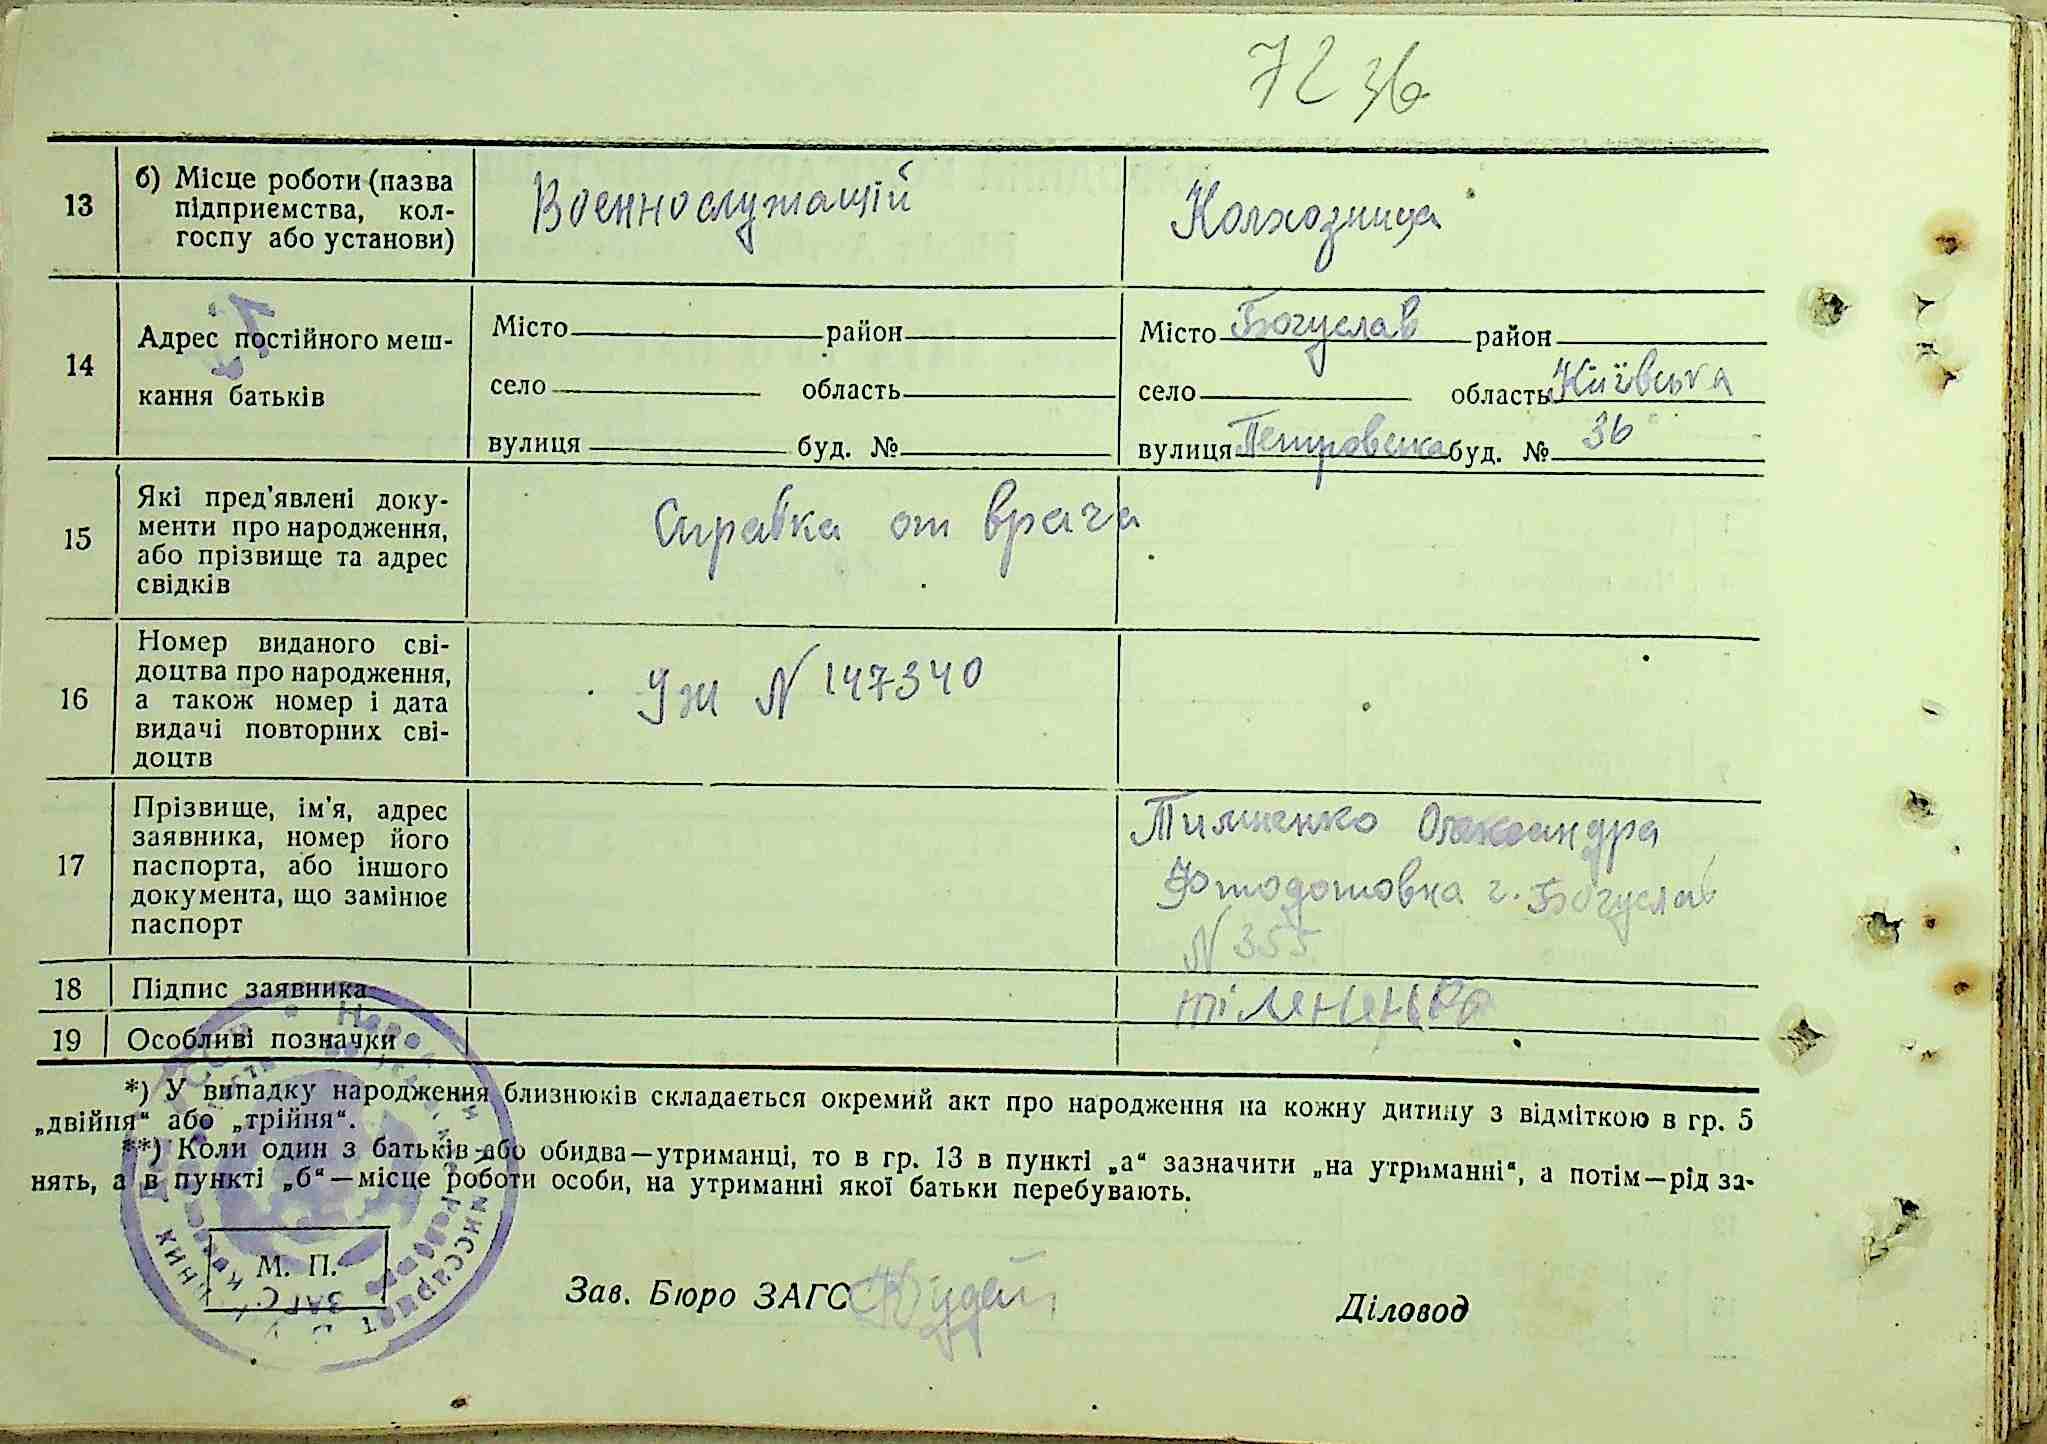 7236
13
б) Місце роботи (назва
підприємства, кол-
госпу або установи)
Военнослужащій
Колхозница
14
Адрес постійного меш-
кання батьків
Місто район
село область
вулиця буд. №
Місто Богуслав район
село область Київська
вулиця Петровська буд. № 36
15
Які пред'явлені доку-
менти про народження,
або прізвище та адрес
свідків
Справка от врача
16
Номер виданого сві-
доцтва про народження,
а також номер і дата
видачі повторних сві-
доцтв
УЖ N 147340
17
Прізвище, ім'я, адрес
заявника, номер його
паспорта, або іншого
документа, що замінює
паспорт
Олександра
г. Богуслав
N 355
18
Підпис заявника
19
Особливі позначки
*) У випадку народження близнюків складається окремий акт про народження на кожну дитину з відміткою в гр. 5
„двійня“ або „трійня“.
**) Коли один з батьків або обидва—утриманці, то в гр. 13 в пункті „а“ зазначити „на утриманні“, а потім—рід за-
нять, а в пункті „б“—місце роботи особи, на утриманні якої батьки перебувають.
М. П.
ЗАГС
Зав. Бюро ЗАГС
Діловод